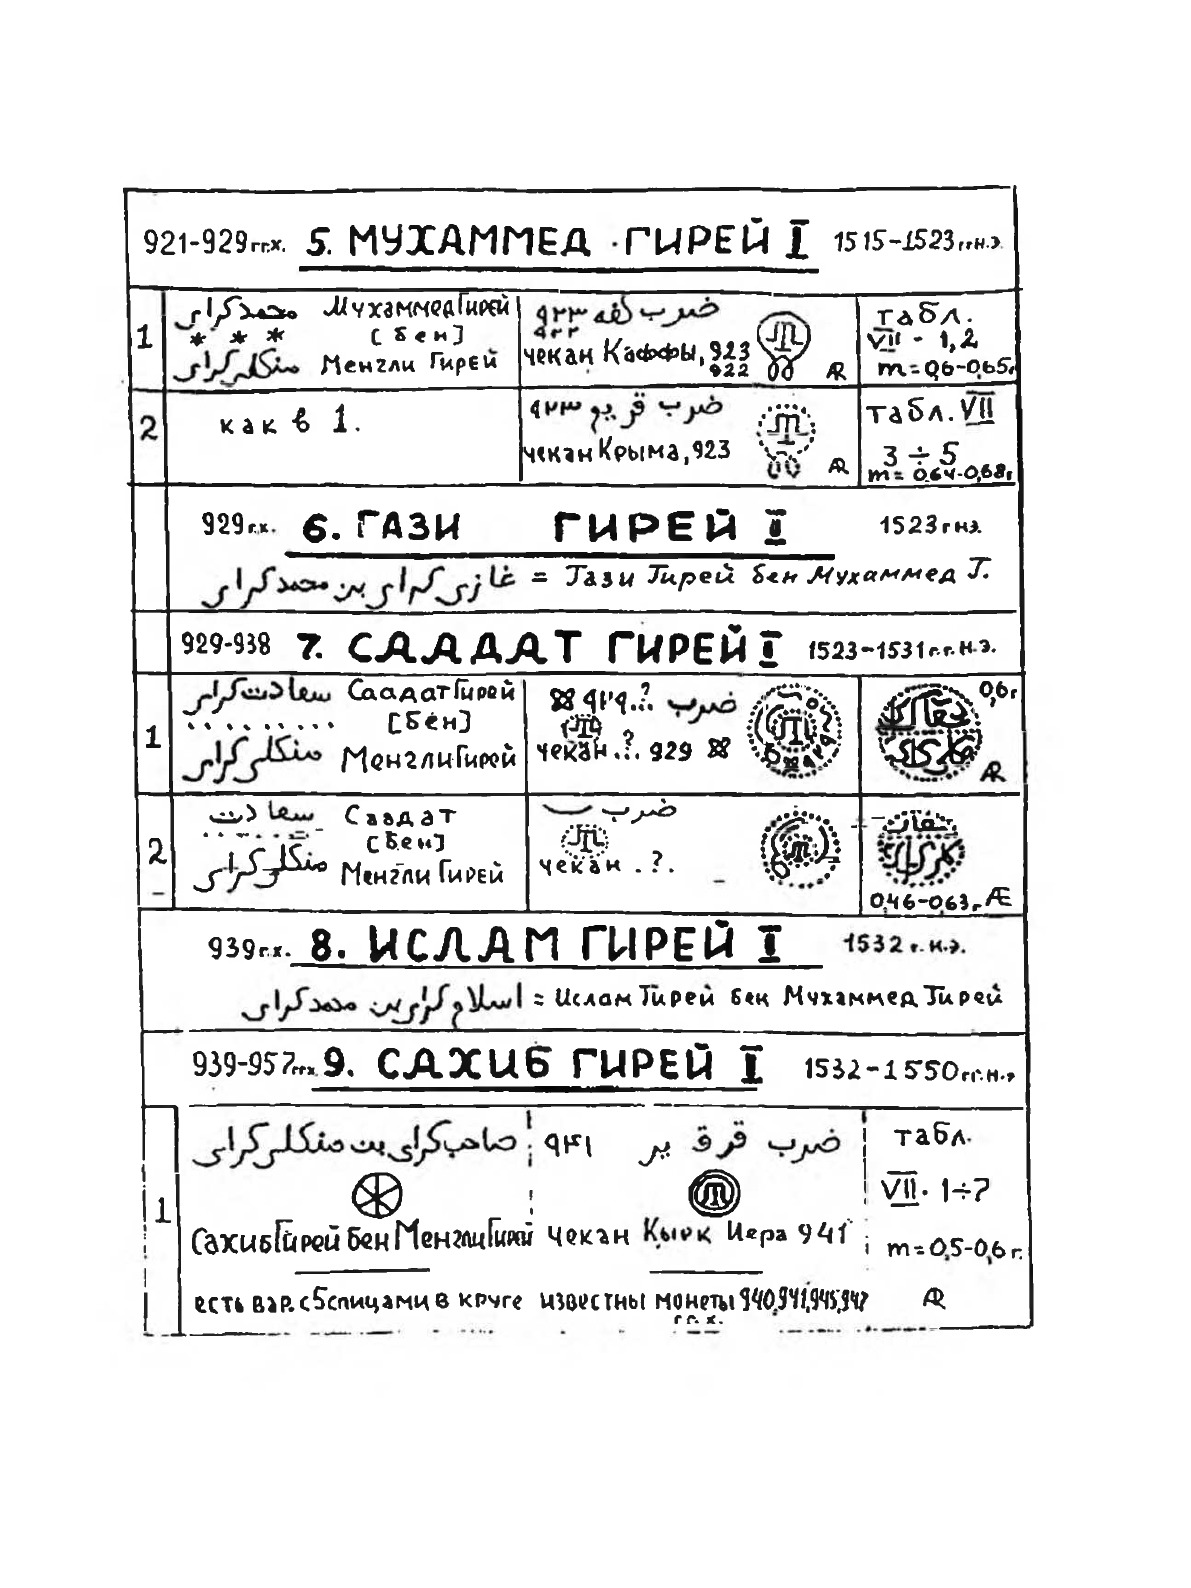 921-929гг.х. 5. МУХАММЕД ·ГИРЕЙ I 1515-1523ггн.э.
1 محمد كراى Мухаммед Гирей ضرب كفه ٩٢٣ табл.
* * * [бен] ٩٢٢ VII - 1,2
منكلى كراى Менгли Гирей чекан Каффы, 923 m=0,6-0,65г
922 AR
2 как в 1. ضرب قريم ٩٢٣ табл. VII
чекан Крыма, 923 3÷5
AR m= 0,64-0,68г
929г.х. 6. ГАЗИ ГИРЕЙ I 1523гнэ.
غازى كراى بن محمد كراى = Гази Гирей бен Мухаммед Г.
929-938 7. СААДАТ ГИРЕЙ I 1523-1531г.г.н.э.
1 سعادت كراى Саадат Гирей ضرب .?. ٩٢٩ 0,6г
......... [бен]
منكلى كراى Менгли Гирей чекан .?. 929 AR
2 سعادت Саадат ضرب
[бен]
منكلى كراى Менгли Гирей чекан .?.
0,46-0,63г AE
939г.х. 8. ИСЛАМ ГИРЕЙ I 1532 г.н.э.
اسلام كراى بن محمد كراى = Ислам Гирей бен Мухаммед Гирей
939-957ггх. 9. САХИБ ГИРЕЙ I 1532-1550гг.н.э
صاحب كراى بن منكلى كراى ضرب قرق ير ٩٤١ табл.
1 VII. 1÷7
Сахиб Гирей бен Менгли Гирей чекан Кырк Иера 941 m=0,5-0,6г.
есть вар. с 5 спицами в круге известны монеты 940,941,945,947 AR
гг.х.